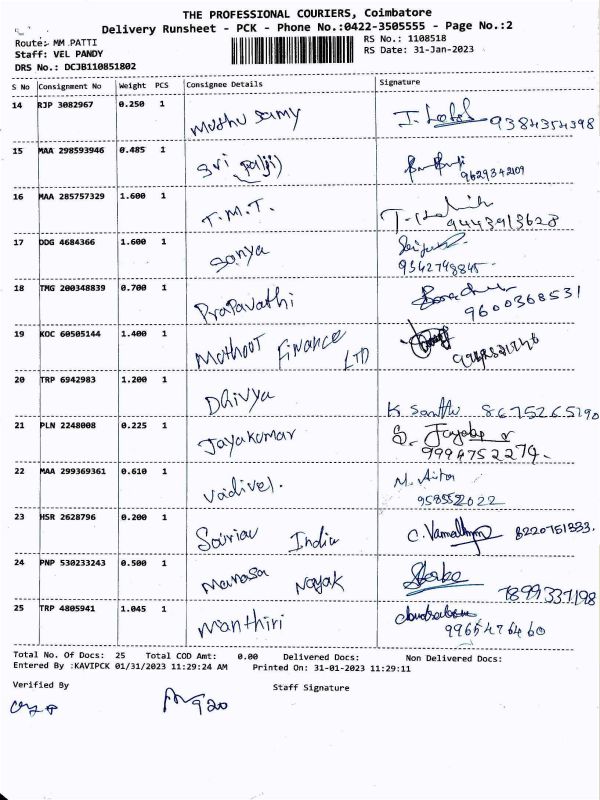 THE PROFESSIONAL COURIERS, Coimbatore
Delivery Runsheet - PCK - Phone No.:0422-3505555 - Page No.:2
Route: MM PATTI RS No.: 1108518
Staff: VEL PANDY RS Date: 31-Jan-2023
DRS No.: DCJB110851802
S No Consignment No Weight PCS Consignee Details Signature
14 RJP 3082967 0.250 1 Muthu Samy 9384354398
15 MAA 298593946 0.485 1 Sri Palji 9629342109
16 MAA 285757329 1.600 1 T.M.T. 9443913628
17 DDG 4684366 1.600 1 Sanya
18 TMG 200348839 0.700 1 Prapavathi 9600368531
19 KOC 60505144 1.400 1 Muthoot Finance LTD
20 TRP 6942983 1.200 1 Dhivya K. Santhu 8675265290
21 PLN 2248008 0.225 1 Jayakumar 9994752274.
22 MAA 299369361 0.610 1 Vadivel. 9585522022
23 HSR 2628796 0.200 1 India 8220751333.
24 PNP 530233243 0.500 1 Manasa Nayak 7899337198
25 TRP 4805941 1.045 1 Manthiri 9965476460
Total No. Of Docs: 25 Total COD Amt: 0.00 Delivered Docs: Non Delivered Docs:
Entered By :KAVIPCK 01/31/2023 11:29:24 AM Printed On: 31-01-2023 11:29:11
Verified By Staff Signature